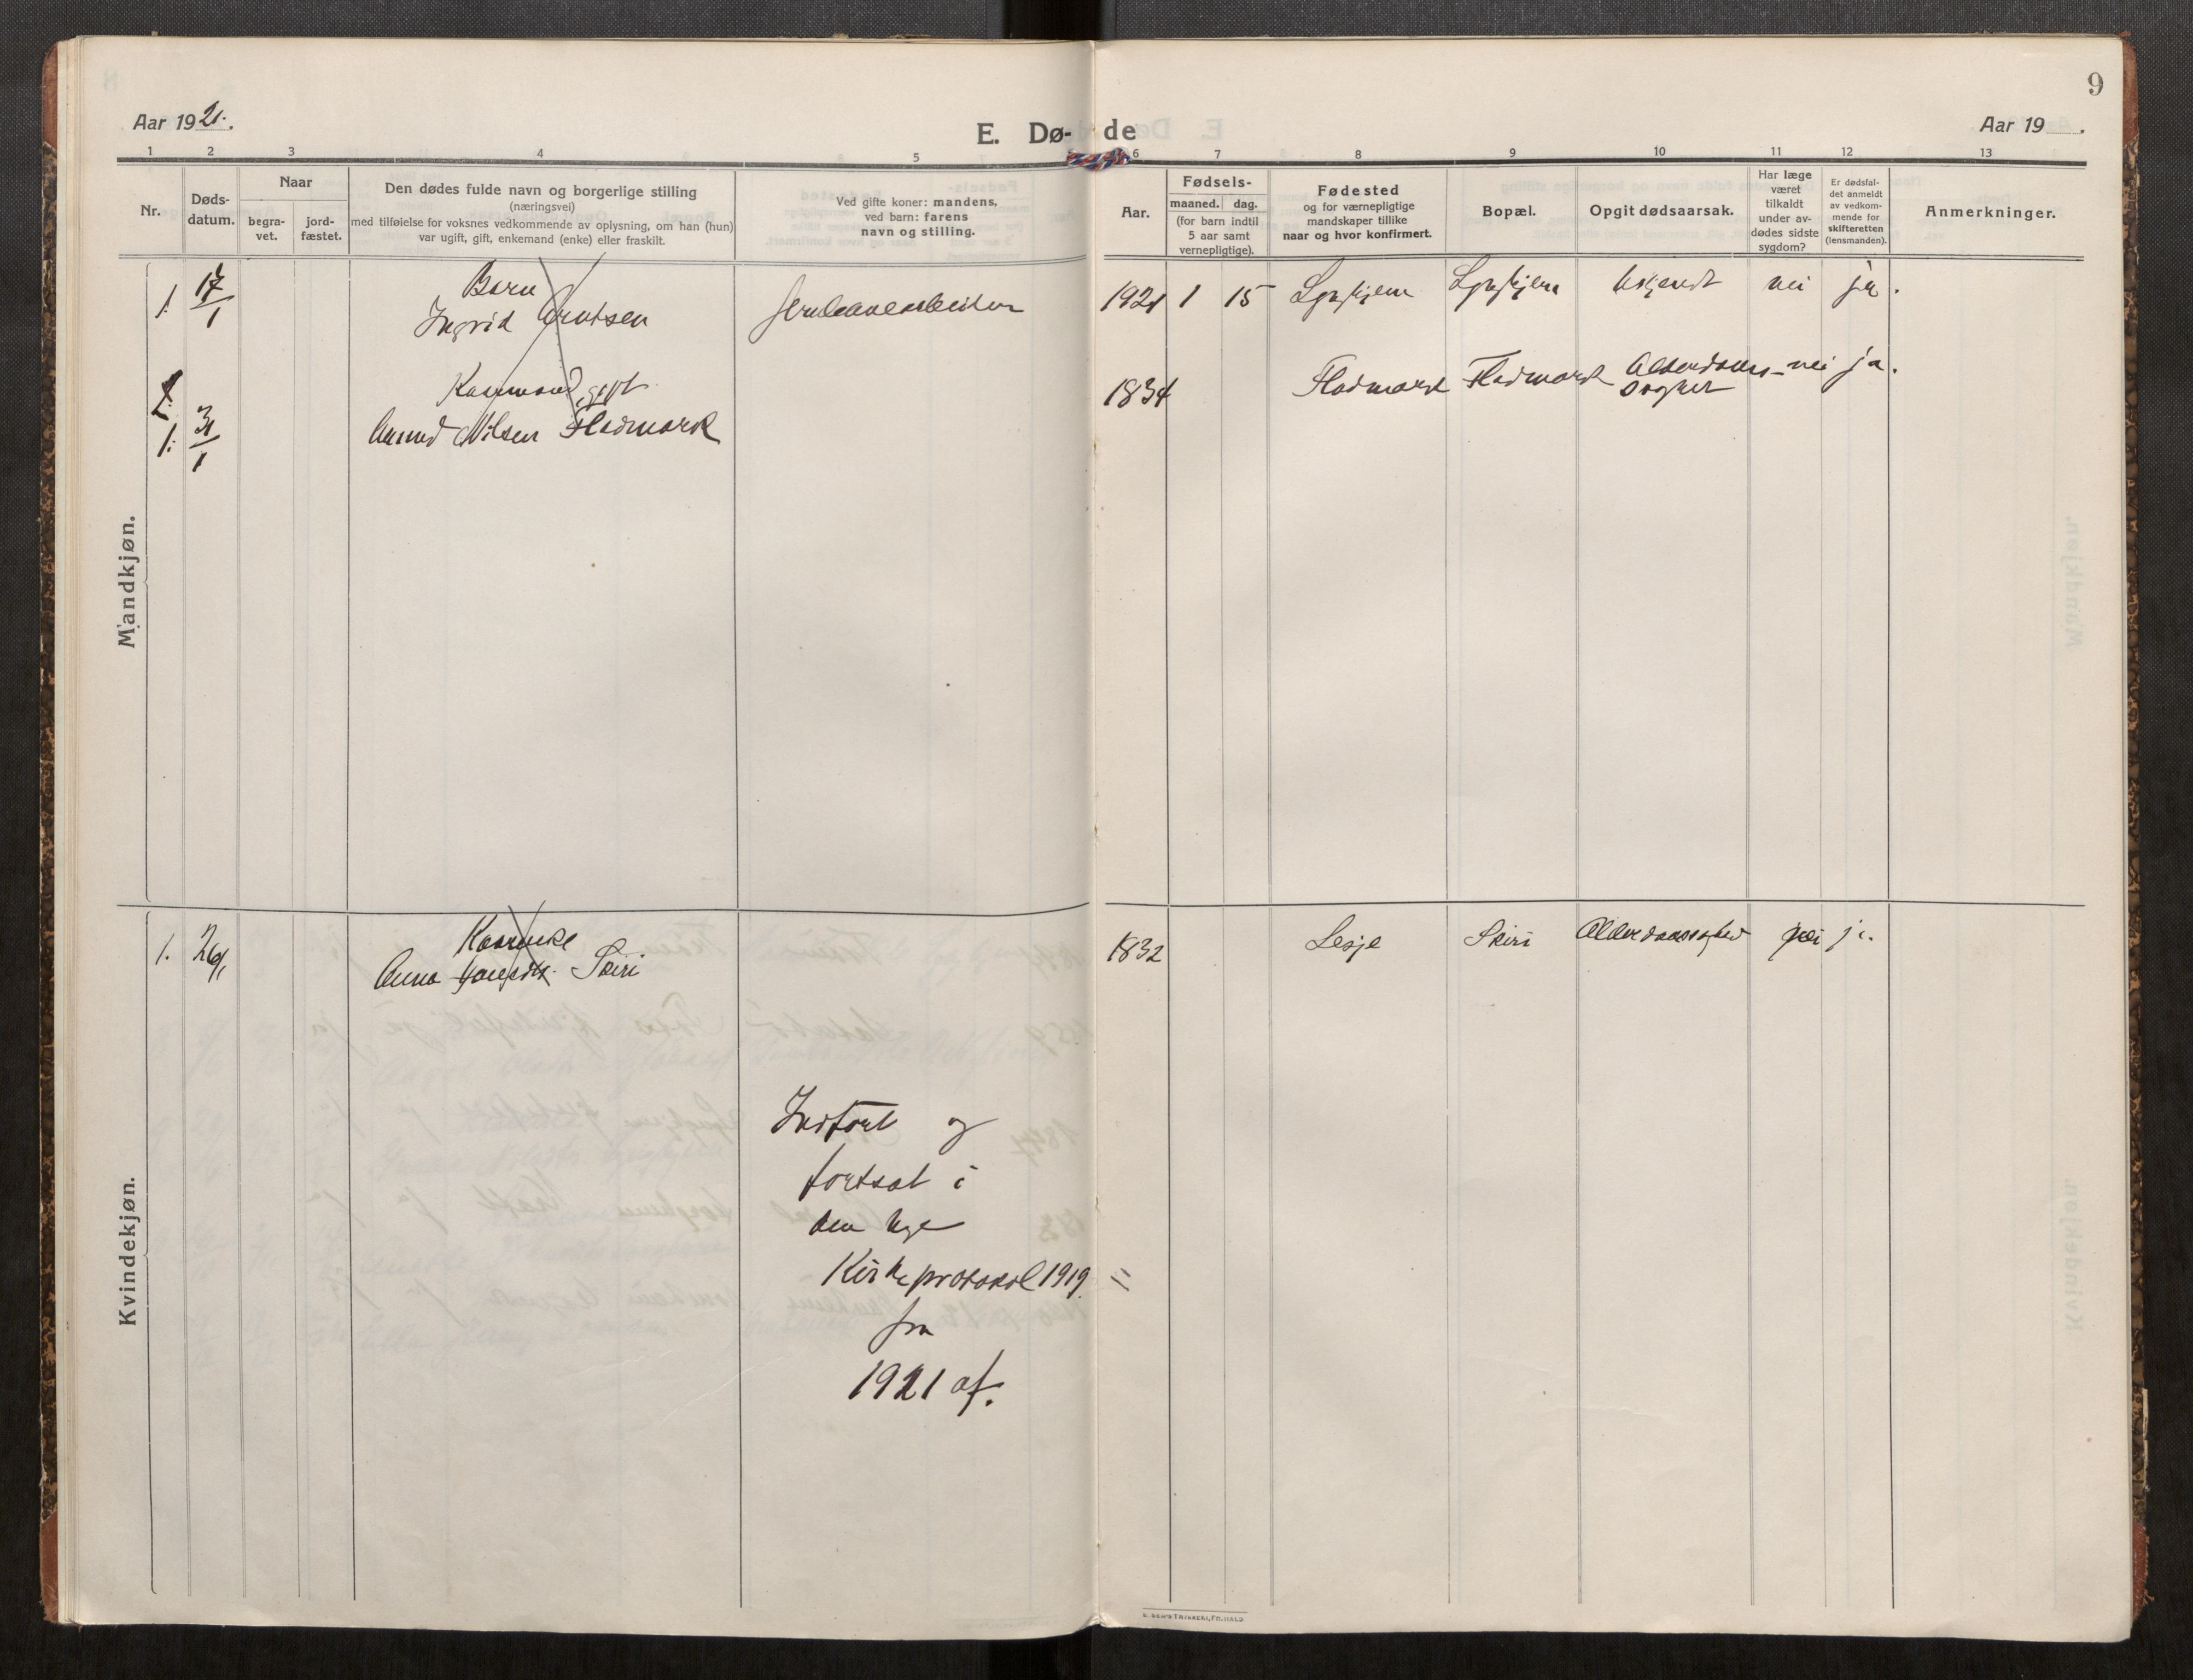 9
Aar 1921.
E. Dø-
de
Aar 19 .
1 2 3 4 5 6 7 8 9 10 11 12 13
Nr.
Døds-
datum.
Naar
begra-
vet.
jord-
fæstet.
Den dødes fulde navn og borgerlige stilling
(næringsvei)
med tilføielse for voksnes vedkommende av oplysning, om han (hun)
var ugift, gift, enkemand (enke) eller fraskilt.
Ved gifte koner: mandens,
ved barn: farens
navn og stilling.
Aar.
Fødsels-
maaned. dag.
(for barn indtil
5 aar samt
vernepligtige).
Fødested
og for værnepligtige
mandskaper tillike
naar og hvor konfirmert.
Bopæl.
Opgit dødsaarsak.
Har læge
været
tilkaldt
under av-
dødes sidste
sygdom?
Er dødsfal-
det anmeldt
av vedkom-
mende for
skifteretten
(lensmanden).
Anmerkninger.
Mandkjøn.
1. 17/1
Barn
Ingrid Arntsen
1921 1 15 ukjendt nei ja.
Kaarmand, gift
Amund Nilsen Fladmark
1. 31/1
1834 Fladmark Fladmark Alderdoms-
nei ja.
Kvindekjøn.
1. 26/1
Kaarenke
Anna Skiri
1832 Lesje Skiri Alderdomssvaghed nei ja.
Indført og
fortsat i
den nye
Kirkeprotokol 1919 =
fra
1921 af.